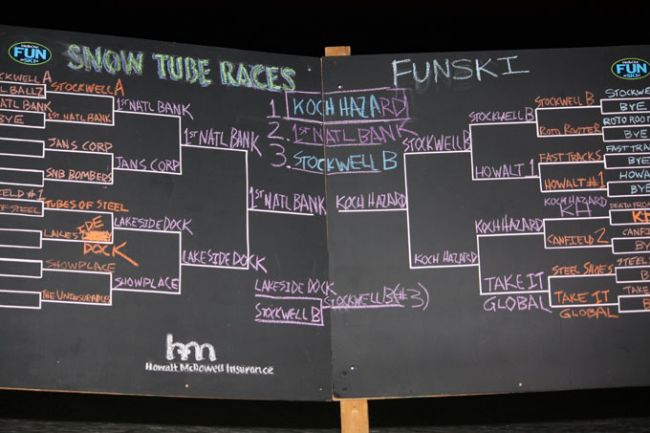 FUN
SKI
SNOW TUBE RACES
FUNSKI
FUN
SKI
1. KOCH HAZARD
2. 1ST NATL BANK
3. STOCKWELL B
STOCKWELL A
BALLZ
NATL BANK
BYE
#1
OF STEEL
STOCKWELL A
1ST NATL BANK
JANS CORP
SNB BOMBERS
TUBES OF STEEL
LAKESIDE DOCK
SHOWPLACE
THE UNINSURABLES
1ST NATL BANK
JANS CORP
LAKESIDE DOCK
SHOWPLACE
1ST NATL BANK
LAKESIDE DOCK
1ST NATL BANK
KOCH HAZARD
LAKESIDE DOCK
STOCKWELL B
STOCKWELL B (#3)
STOCKWELL B
KOCH HAZARD
STOCKWELL B
HOWALT 1
KOCH HAZARD
TAKE IT
GLOBAL
STOCKWELL B
ROTO ROOTER
FAST TRACKS
HOWALT #1
KOCH HAZARD
KH
CANFIELD 2
STEEL SHOES
TAKE IT
GLOBAL
BYE
ROTO ROO
BYE
FAST TRAC
BYE
HOWA
BYE
DEATH FROM
KH
CANFI
BY
STEEL S
BY
TAKE
BY
hm
Howalt McDowell Insurance